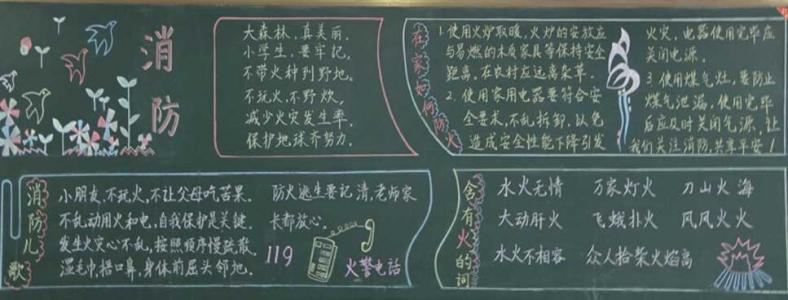 消防
大森林，真美丽.
小学生，要牢记.
不带火种到野地.
不玩火，不野炊，
减少火灾发生率.
保护地球齐努力.
在家如何防火
1. 使用火炉取暖，火炉的安放应
与易燃的木质家具等保持安全
距离，在农村应远离柴草.
2. 使用家用电器要符合安
全要求，不乱拆卸，以免
造成安全性能下降引发
火灾，电器使用完毕应
关闭电源.
3. 使用煤气灶，要防止
煤气泄漏，使用完毕
后应及时关闭气源，让
我们关注消防，共享平安！
消防儿歌
小朋友，不玩火，不让父母吃苦果.
不乱动用火和电，自我保护是关键.
发生火灾心不乱，按照顺序慢疏散.
湿毛巾捂口鼻，身体前屈头邻地.
防火逃生要记清，老师家
长都放心.
119
火警电话
含有火的词
水火无情 万家灯火 刀山火海
大动肝火 飞蛾扑火 风风火火
水火不相容 众人拾柴火焰高